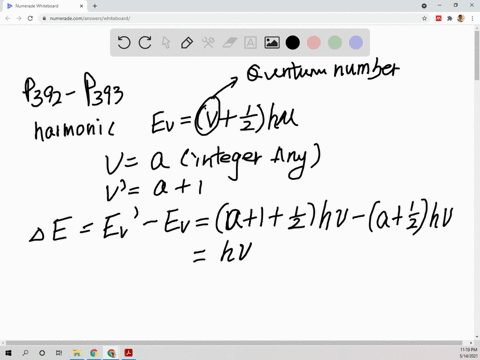 Numerade Whiteboard
numerade.com/answers/whiteboard/
Update
A
Quentum number
P392 - P393
harmonic Ev = (v + 1/2) hu
V = a (integer Any)
v' = a + 1
△E = Ev' - Ev = (a + 1 + 1/2) hν - (a + 1/2) hν
= hν
11:10 PM
5/14/2021